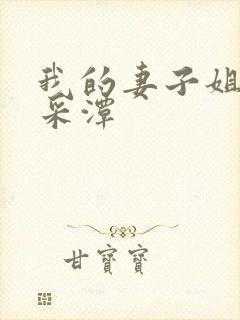 我的妻子姐
采潭
甘寶寶